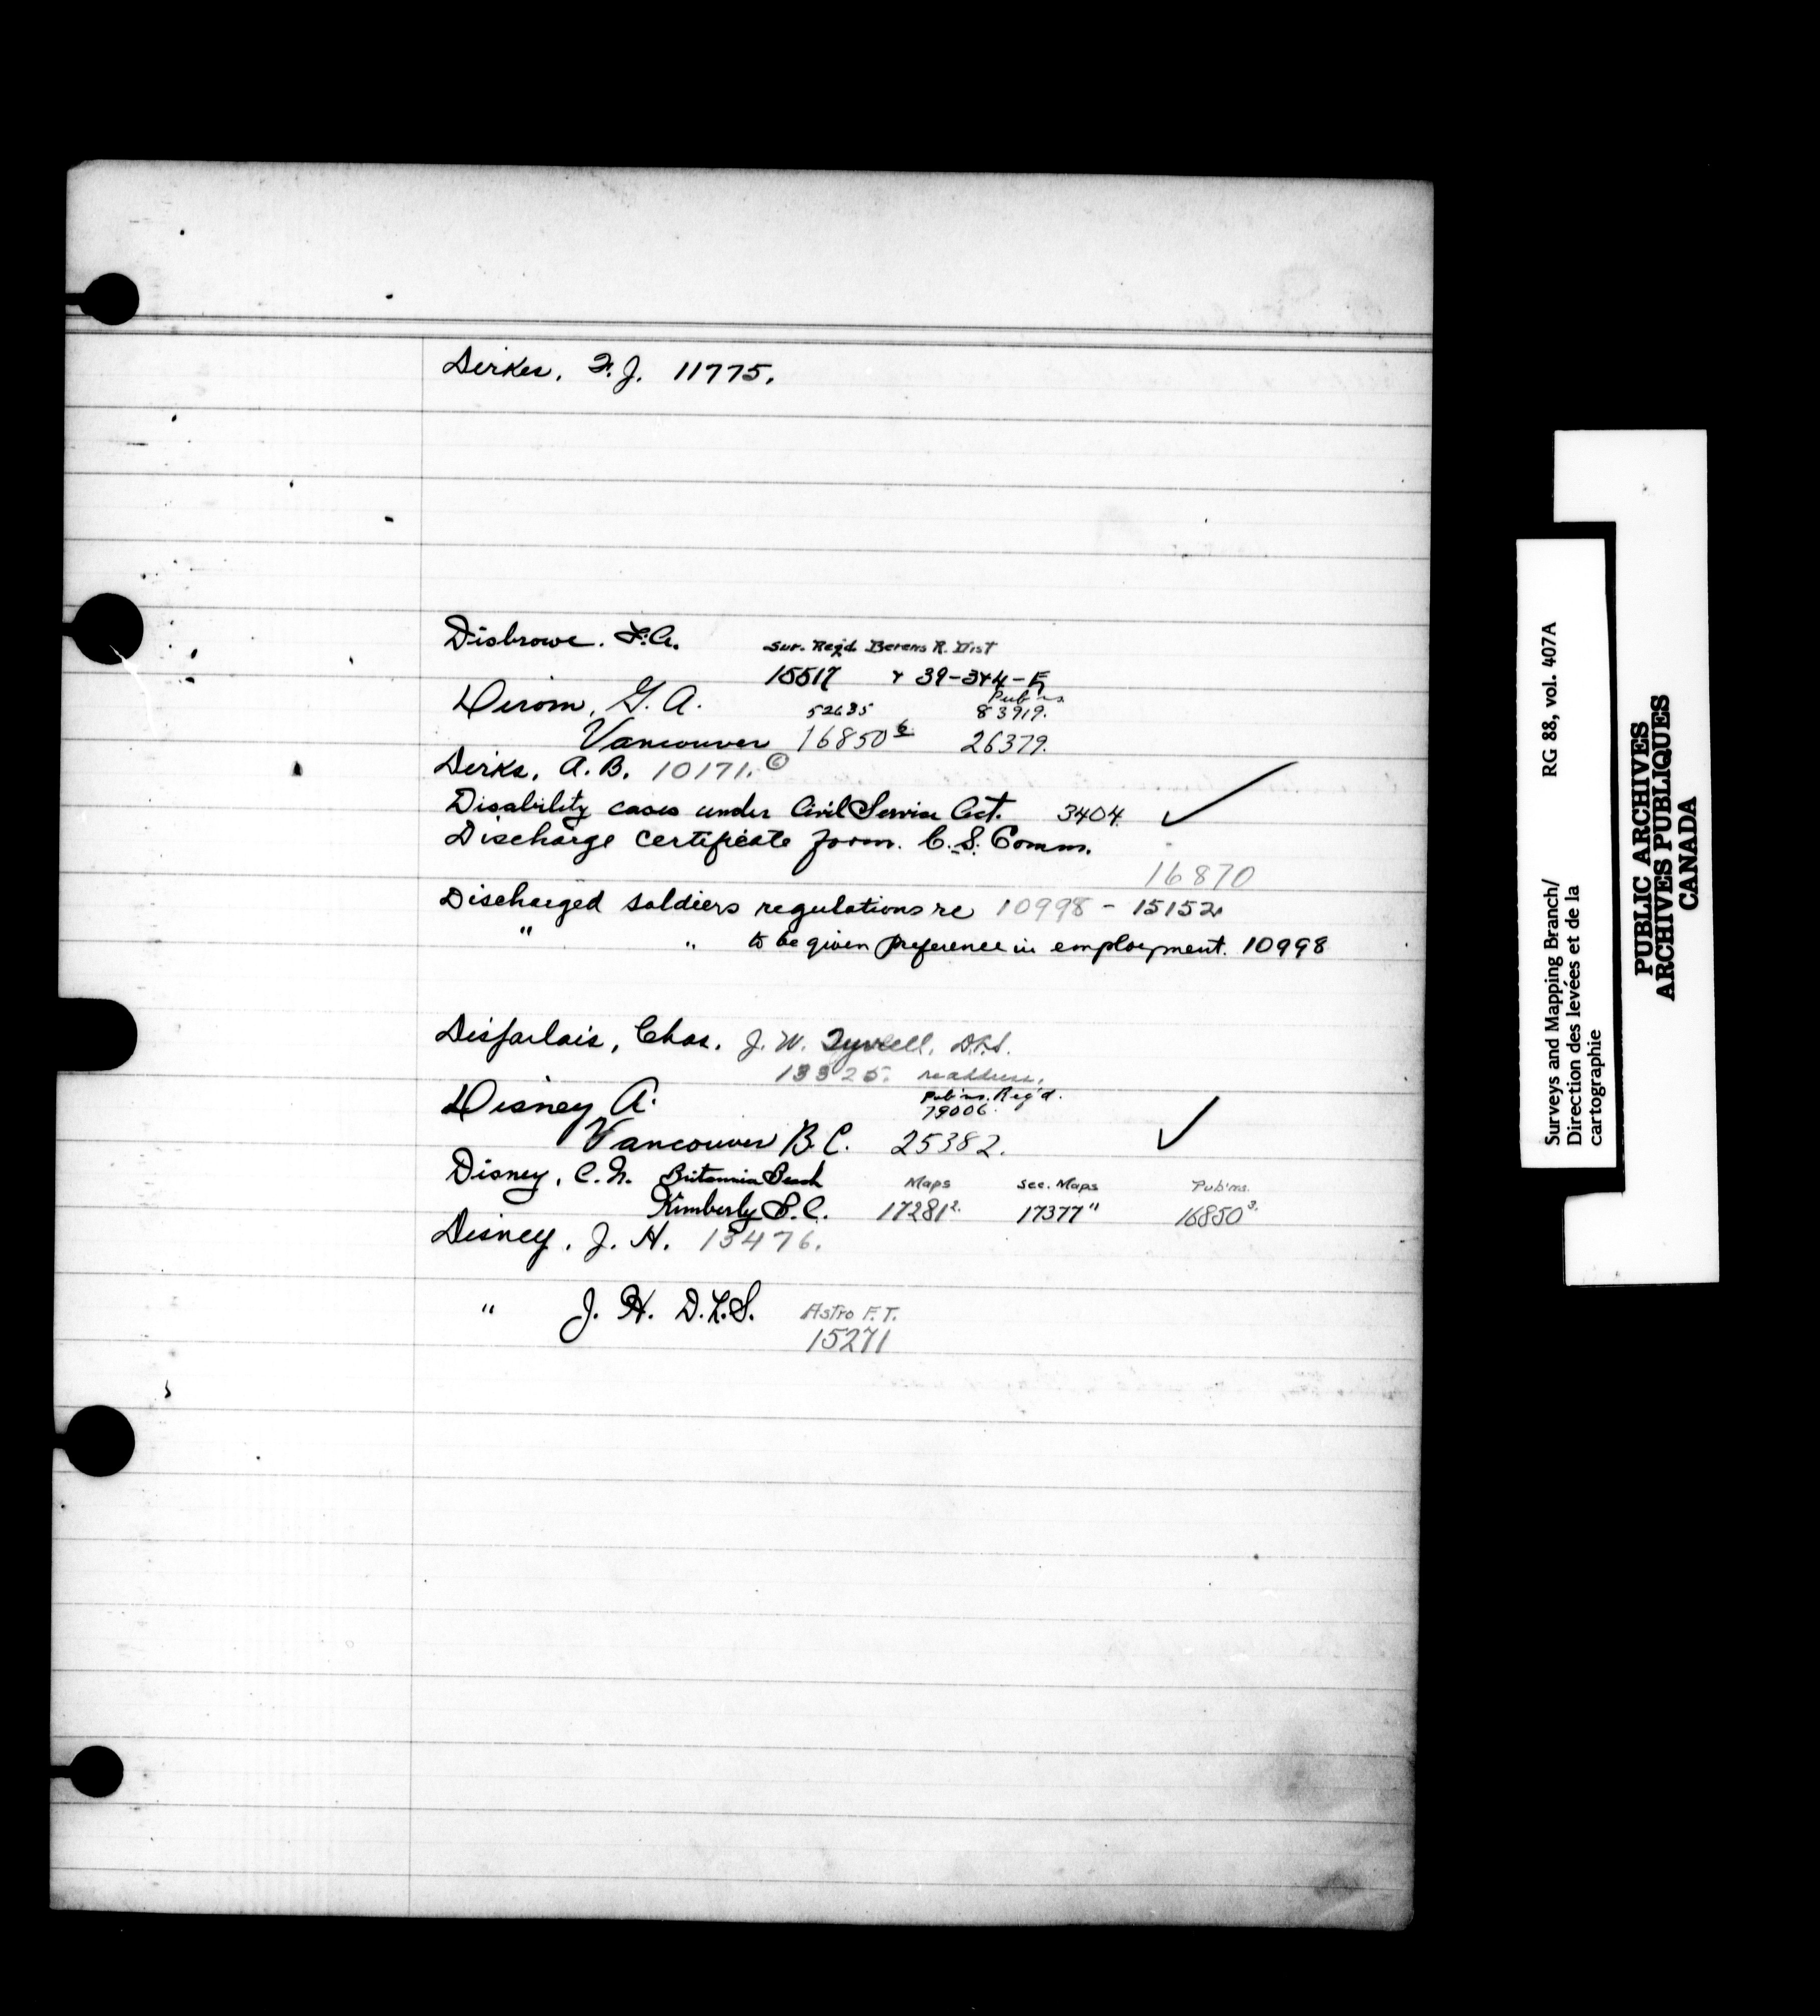 Dirkes, F. J. 11775.
Disbrowe. F.A. Sur. Reqd. Berens R. Dist
15517 & 39-344-E
Dirom, G. A. 52635 Pub'ns 83919.
Vancouver 16850 6. 26379.
Dirks, A. B. 10171. ©
Disability cases under Civil Service Act. 3404.
Discharge certificate form. C. S. Comm.
16870
Discharged soldiers regulations re 10998 - 15152
" " to be given preference in employment. 10998
Disjarlais, Chas. J. W. Tyrrell, D.L.S.
13325. re address.
Disney A. Pub'ns. Req'd. 79006.
Vancouver B.C. 25382.
Disney, C. N. Britannia Beach Maps Sec. Maps Pub'ns.
Kimberly B.C. 17281 2. 17377 " 16850 3.
Disney, J. H. 13476.
" J. H. D.L.S. Astro F.T.
15271
Surveys and Mapping Branch/ RG 88, vol. 407A
Direction des levées et de la
cartographie
PUBLIC ARCHIVES
ARCHIVES PUBLIQUES
CANADA